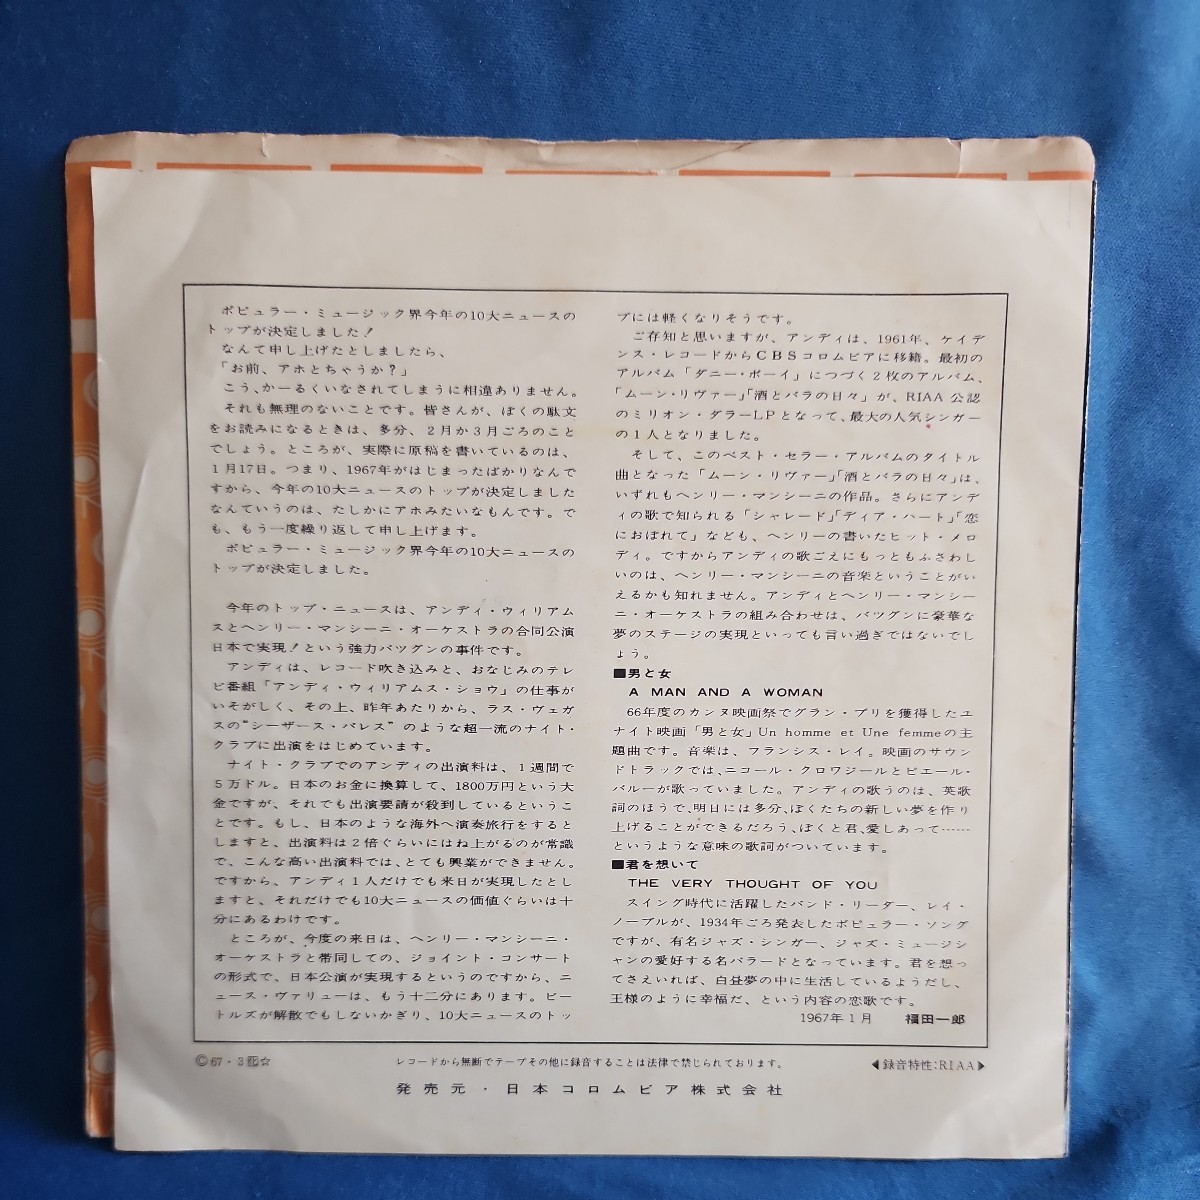 ポピュラー・ミュージック界今年の10大ニュースの
トップが決定しました！
なんて申し上げたとしましたら、
「お前、アホとちゃうか？」
こう、かーるくいなされてしまうに相違ありません。
それも無理のないことです。皆さんが、ぼくの駄文
をお読みになるときは、多分、２月か３月ごろのこと
でしょう。ところが、実際に原稿を書いているのは、
１月17日。つまり、1967年がはじまったばかりなんで
すから、今年の10大ニュースのトップが決定しました
なんていうのは、たしかにアホみたいなもんです。で
も、もう一度繰り返して申し上げます。
ポピュラー・ミュージック界今年の10大ニュースの
トップが決定しました。
今年のトップ・ニュースは、アンディ・ウィリアム
スとヘンリー・マンシーニ・オーケストラの合同公演
日本で実現！という強力バツグンの事件です。
アンディは、レコード吹き込みと、おなじみのテレ
ビ番組「アンディ・ウィリアムス・ショウ」の仕事が
いそがしく、その上、昨年あたりから、ラス・ヴェガ
スの“シーザース・パレス”のような超一流のナイト・
クラブに出演をはじめています。
ナイト・クラブでのアンディの出演料は、１週間で
５万ドル。日本のお金に換算して、1800万円という大
金ですが、それでも出演要請が殺到しているというこ
とです。もし、日本のような海外へ演奏旅行をすると
しますと、出演料は２倍ぐらいにはね上がるのが常識
で、こんな高い出演料では、とても興業ができません。
ですから、アンディ１人だけでも来日が実現したとし
ますと、それだけでも10大ニュースの価値ぐらいは十
分にあるわけです。
ところが、今度の来日は、ヘンリー・マンシーニ・
オーケストラと帯同しての、ジョイント・コンサート
の形式で、日本公演が実現するというのですから、ニ
ュース・ヴァリューは、もう十二分にあります。ビー
トルズが解散でもしないかぎり、10大ニュースのトッ
プには軽くなりそうです。
ご存知と思いますが、アンディは、1961年、ケイデ
ンス・レコードからＣＢＳコロムビアに移籍。最初の
アルバム「ダニー・ボーイ」につづく２枚のアルバム、
「ムーン・リヴァー」「酒とバラの日々」が、RIAA公認
のミリオン・ダラーLPとなって、最大の人気シンガー
の１人となりました。
そして、このベスト・セラー・アルバムのタイトル
曲となった「ムーン・リヴァー」「酒とバラの日々」は、
いずれもヘンリー・マンシーニの作品。さらにアンデ
ィの歌で知られる「シャレード」「ディア・ハート」「恋
におぼれて」なども、ヘンリーの書いたヒット・メロ
ディ。ですからアンディの歌ごえにもっともふさわし
いのは、ヘンリー・マンシーニの音楽ということがい
えるかも知れません。アンディとヘンリー・マンシー
ニ・オーケストラの組み合わせは、バツグンに豪華な
夢のステージの実現といっても言い過ぎではないでし
ょう。
■男と女
A MAN AND A WOMAN
66年度のカンヌ映画祭でグラン・プリを獲得したユ
ナイト映画「男と女」Un homme et Une femmeの主
題曲です。音楽は、フランシス・レイ。映画のサウン
ドトラックでは、ニコール・クロワジールとピエール・
バルーが歌っていました。アンディの歌うのは、英歌
詞のほうで、明日には多分、ぼくたちの新しい夢を作り
上げることができるだろう、ぼくと君、愛しあって……
というような意味の歌詞がついています。
■君を想いて
THE VERY THOUGHT OF YOU
スイング時代に活躍したバンド・リーダー、レイ・
ノーブルが、1934年ごろ発表したポピュラー・ソング
ですが、有名ジャズ・シンガー、ジャズ・ミュージシ
ャンの愛好する名バラードとなっています。君を想っ
てさえいれば、白昼夢の中に生活しているようだし、
王様のように幸福だ、という内容の恋歌です。
1967年１月　福田一郎
Ⓒ67・3 ☆
レコードから無断でテープその他に録音することは法律で禁じられております。
◀録音特性：RIAA▶
発売元・日本コロムビア株式会社